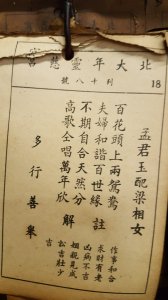 北大年靈慈宮
18
列十八號
孟君玉配梁相女
百花頭上兩鴛鴦
夫婦和諧百世緣
不期自合天然分
高歌全唱萬年欣
註
解
作事和合
求財有老
凶病不吉
婚親見成
訟吉壯少
吉
多行善舉